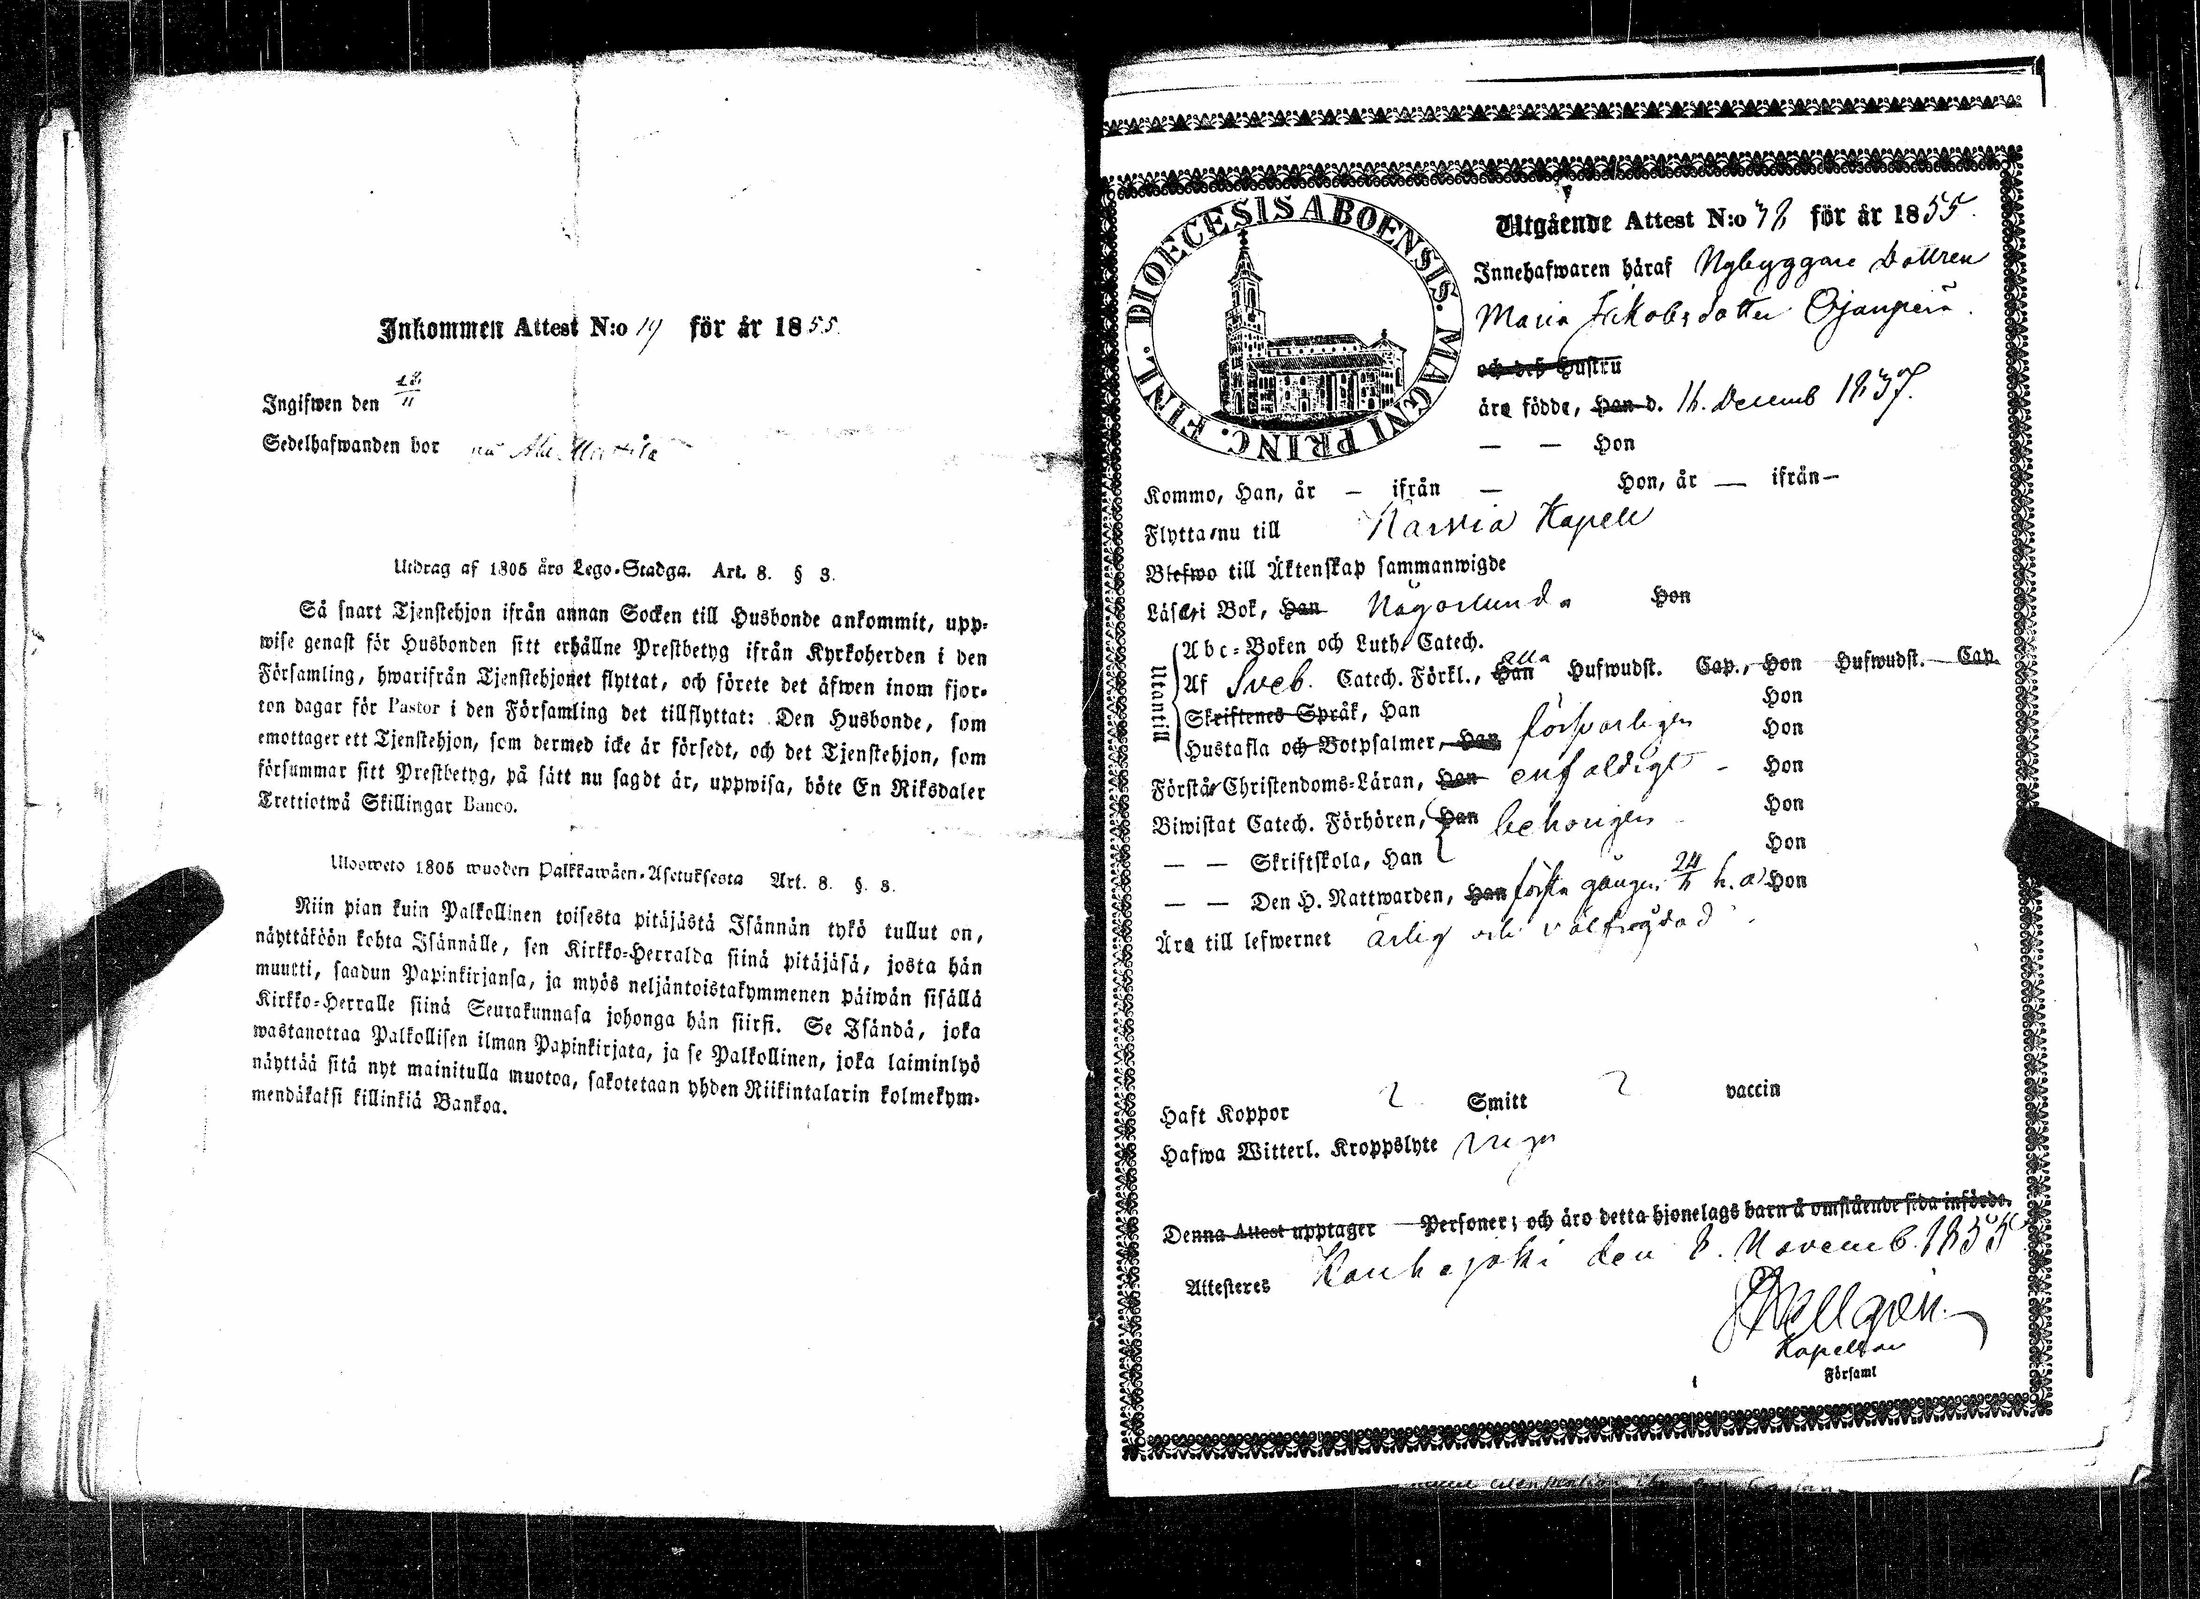 Inkommen Attest N:o 19 för år 1855.
Ingifwen den 18/11
Sedelhafwanden bor på
Utdrag af 1805 års Lego-Stadga. Art. 8. § 3.
Så snart Tjenstehjon ifrån annan Socken till Husbonde ankommit, upp-
wise genast för Husbonden sitt erhållne Prestbetyg ifrån Kyrkoherden i den
Församling, hwarifrån Tjenstehjonet flyttat, och förete det äfwen inom fjor-
ton dagar för Pastor i den Församling det tillflyttat: Den Husbonde, som
emottager ett Tjenstehjon, som dermed icke är försedt, och det Tjenstehjon, som
försummar sitt Prestbetyg, på sätt nu sagdt är, uppwisa, böte En Riksdaler
Trettiotwå Skillingar Banco.
Ulosweto 1805 wuoden Palkkawäen-Asetuksesta Art. 8. §. 3.
Niin pian kuin Palkollinen toisesta pitäjästä Isännän tykö tullut on,
näyttäköön kohta Isännälle, sen Kirkko-Herralda siinä pitäjäsä, josta hän
muutti, saadun Papinkirjansa, ja myös neljäntoistakymmenen päiwän sisällä
Kirkko-Herralle siinä Seurakunnasa johonga hän siirsi. Se Isändä, joka
wastanottaa Palkollisen ilman Papinkirjata, ja se Palkollinen, joka laiminlyö
näyttää sitä nyt mainitulla muotoa, sakotetaan yhden Riikintalarin kolmekym-
mendäkaksi killinkiä Bankoa.
DIOECESIS ABOENSIS. MAGNI PRINC. FINL.
Utgående Attest N:o 78 för år 1855.
Innehafwaren häraf Nybyggare Dottren
Maria Jakobsdotter Ojanperä.
och deß Hustru
äro födde, Han d. 16. Decemb 1837.
— — Hon
Kommo, Han, år — ifrån — Hon, år — ifrån —
Flytta nu till Karvia Kapell
Blefwo till Äktenskap sammanwigde
Läsa i Bok, Han Någorlunda Hon
Utantill
Abc-Boken och Luth. Catech.
Af Sveb. Catech. Förkl., Han alla Hufwudst. Cap., Hon Hufwudst. — Cap.
Skriftenes Språk, Han Hon
Hustafla och Botpsalmer, Han försvarligen Hon
Förstår Christendoms-Läran, Han enfaldigt — Hon
Biwistat Catech. Förhören, Han behörigen Hon
— — Skriftskola, Han Hon
— — Den H. Nattwarden, Han första gången 24/6 h. a. Hon
Äro till lefwernet ärlig och välfrägdad.
Haft Koppor ? Smitt ? vaccin
Hafwa Witterl. Kroppslyte inga
Denna Attest upptager — Personer; och äro detta hjonelags barn å omstående sida införde.
Attesteres Kauhajoki den 8. Novemb. 1855
Kapellan
Församl